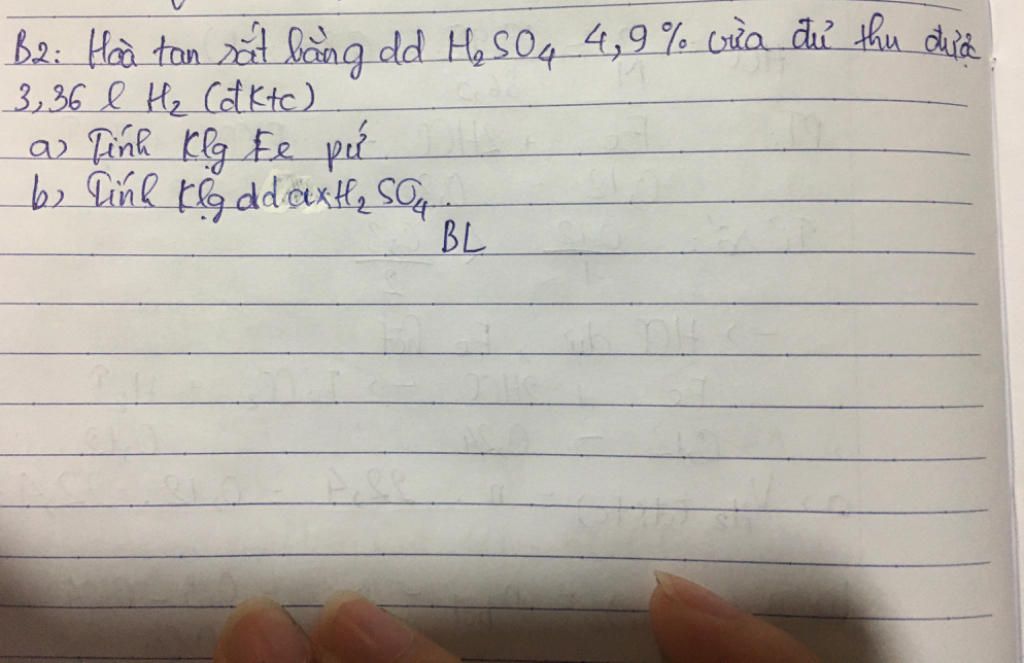 B2: Hoà tan sắt bằng dd H₂SO₄ 4,9% vừa đủ thu được
3,36 l H₂ (đktc)
a) Tính klg Fe pứ
b) Tính klg dd ax H₂SO₄.
BL